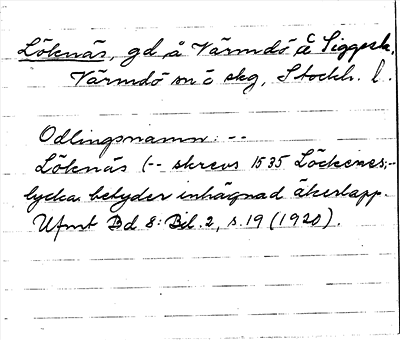 Löknäs, gd å Värmdö č Siggesk.
Värmdö sn č skg, Stockh. l.
Odlingsnamn: --
Löknäs (-- skrevs 1535 Löckenes;-
lycka betyder inhägnad åkerlapp.
Ufmt Bd 8: Bil. 2, s. 19 (1920).